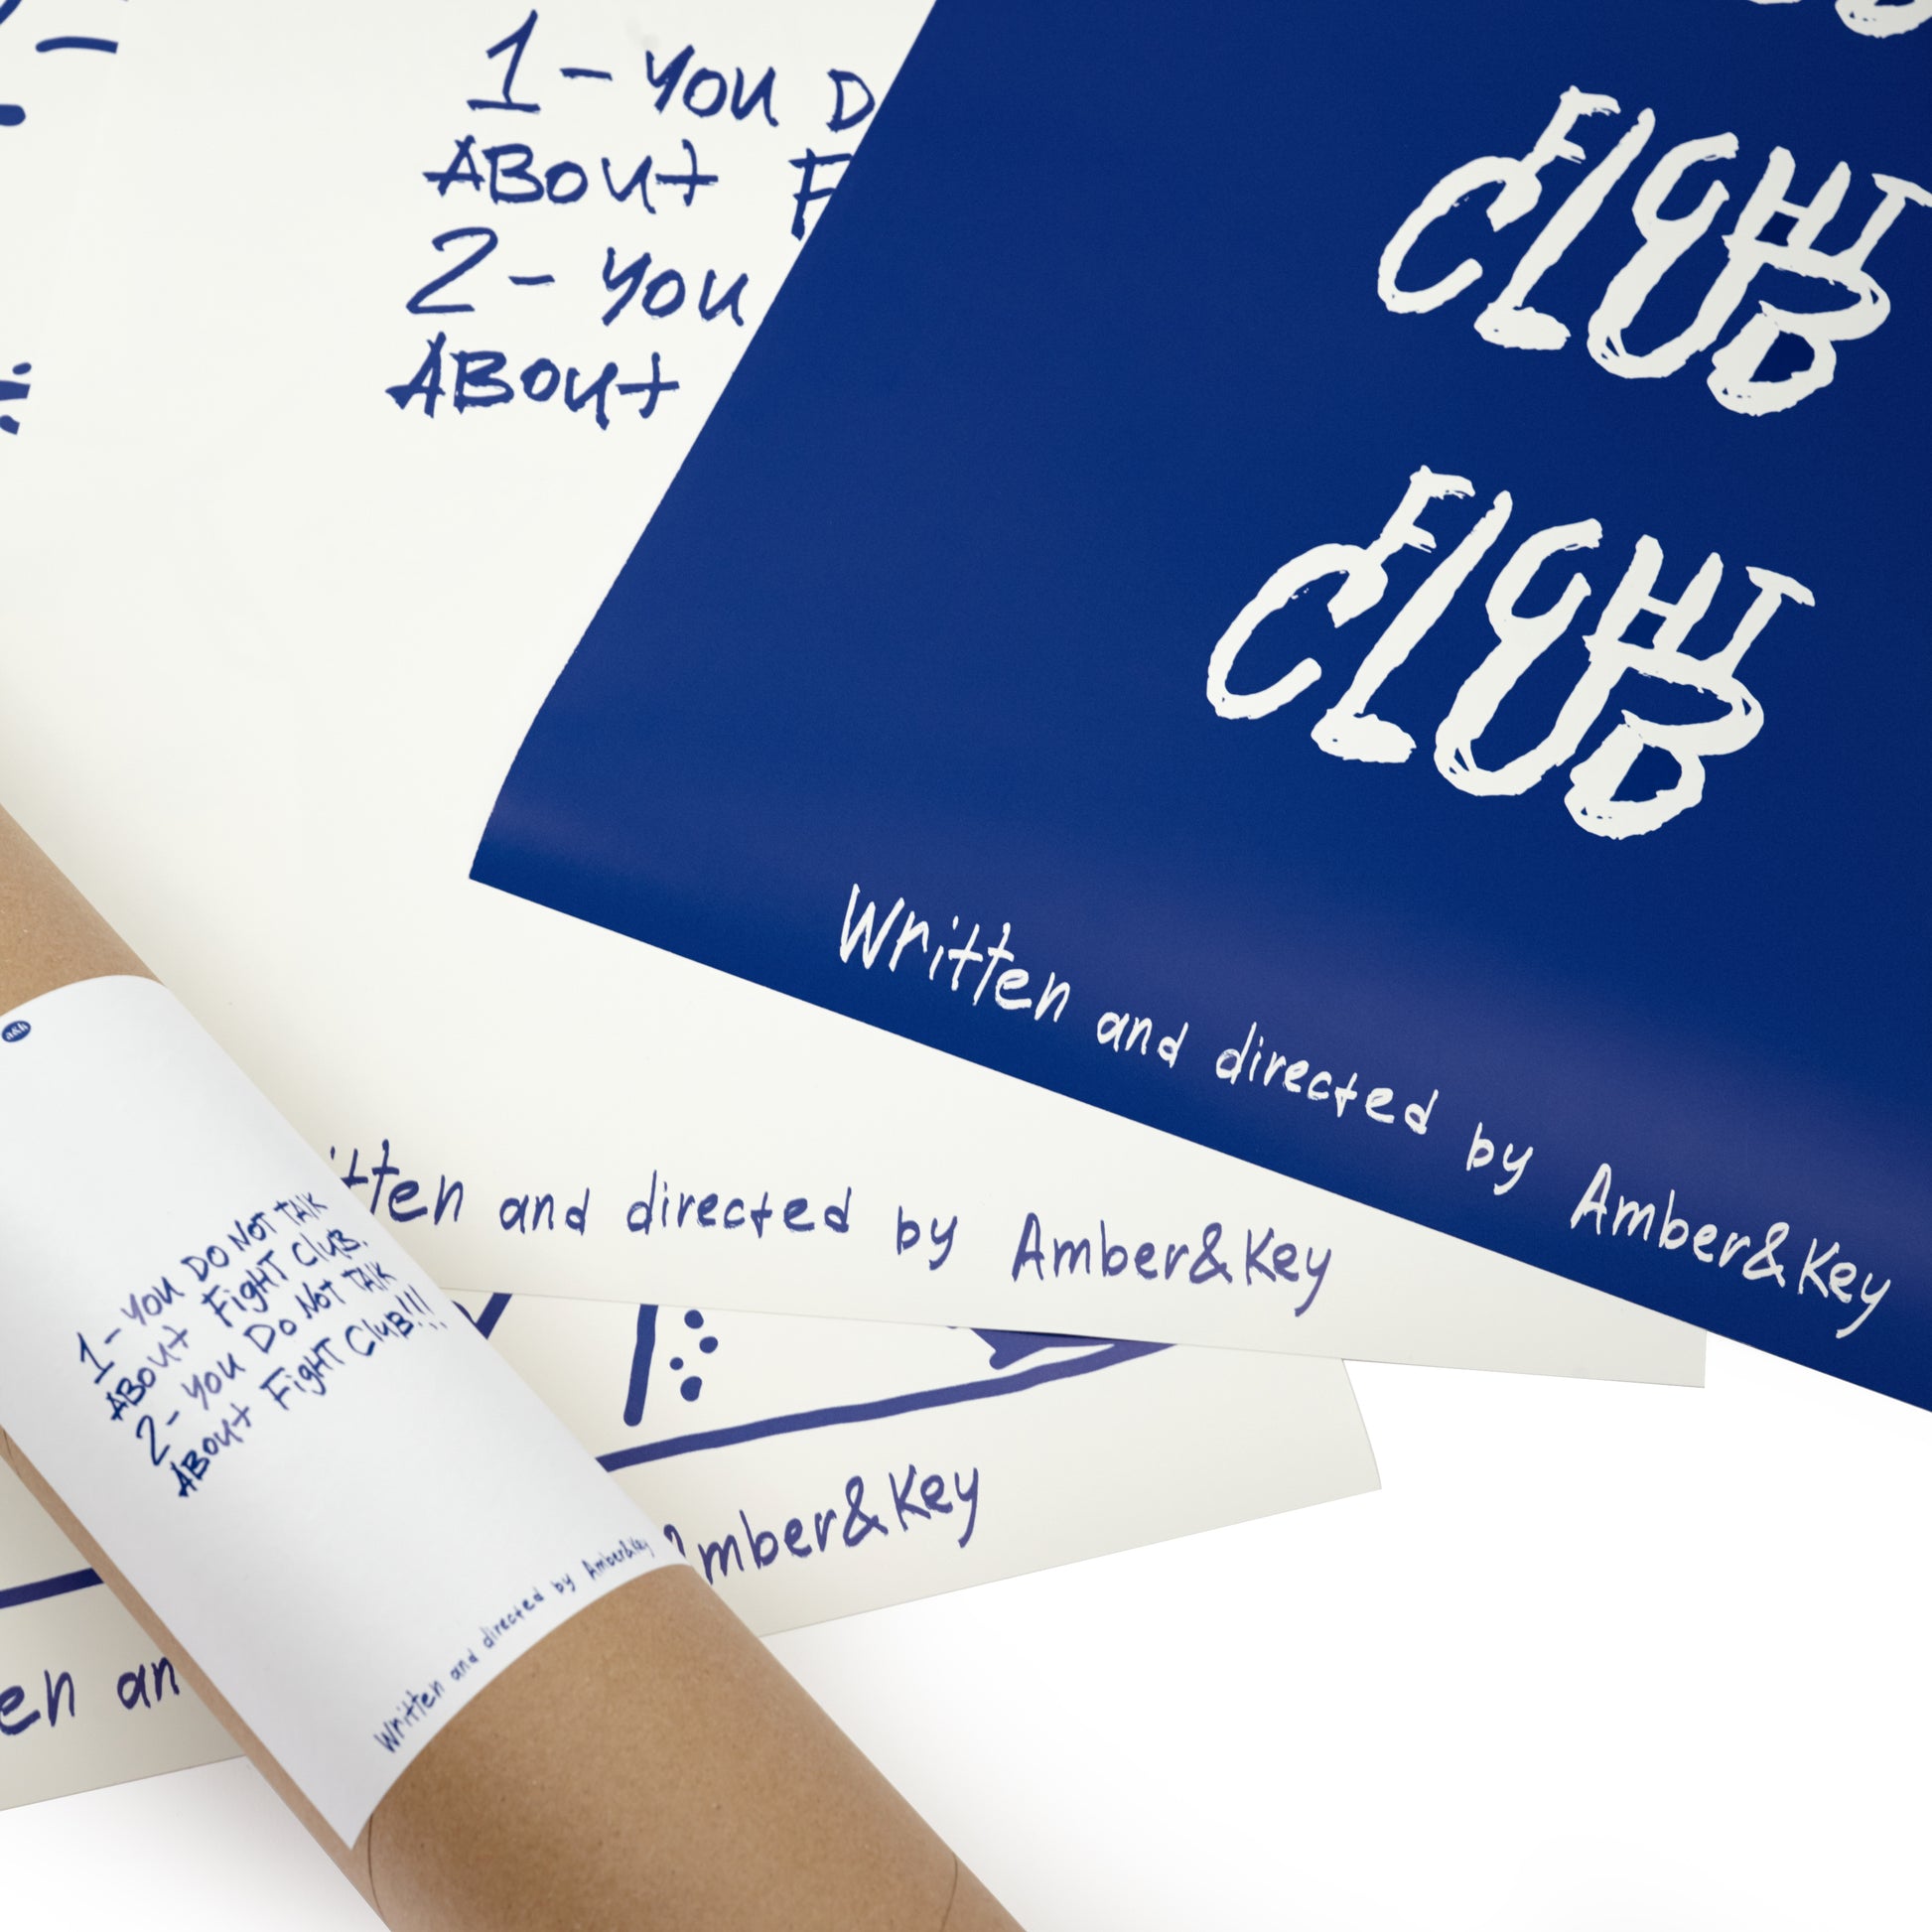 1- YOU D
ABOUT F
2- YOU
ABOUT
FIGHT
CLUB
FIGHT
CLUB
Written and directed by Amber&Key
itten and directed by Amber&Key
a&k
1- YOU DO NOT TALK
ABOUT FigHT Club.
2- YOU DO NOT TALK
ABOUT FigHT Club!!!
Written and directed by Amber&Key
Amber&Key
en an